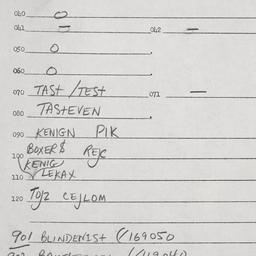 040 O
041 = 042 —
050 O
060 O
070 TAST / TEST 071 —
080 TASTEVEN
090 KENIGN PIK
100 BOXER$ REJC
KENIG
110 LEKAX
120 TOJZ CEJLOM
901 BLINDENIST (/169050